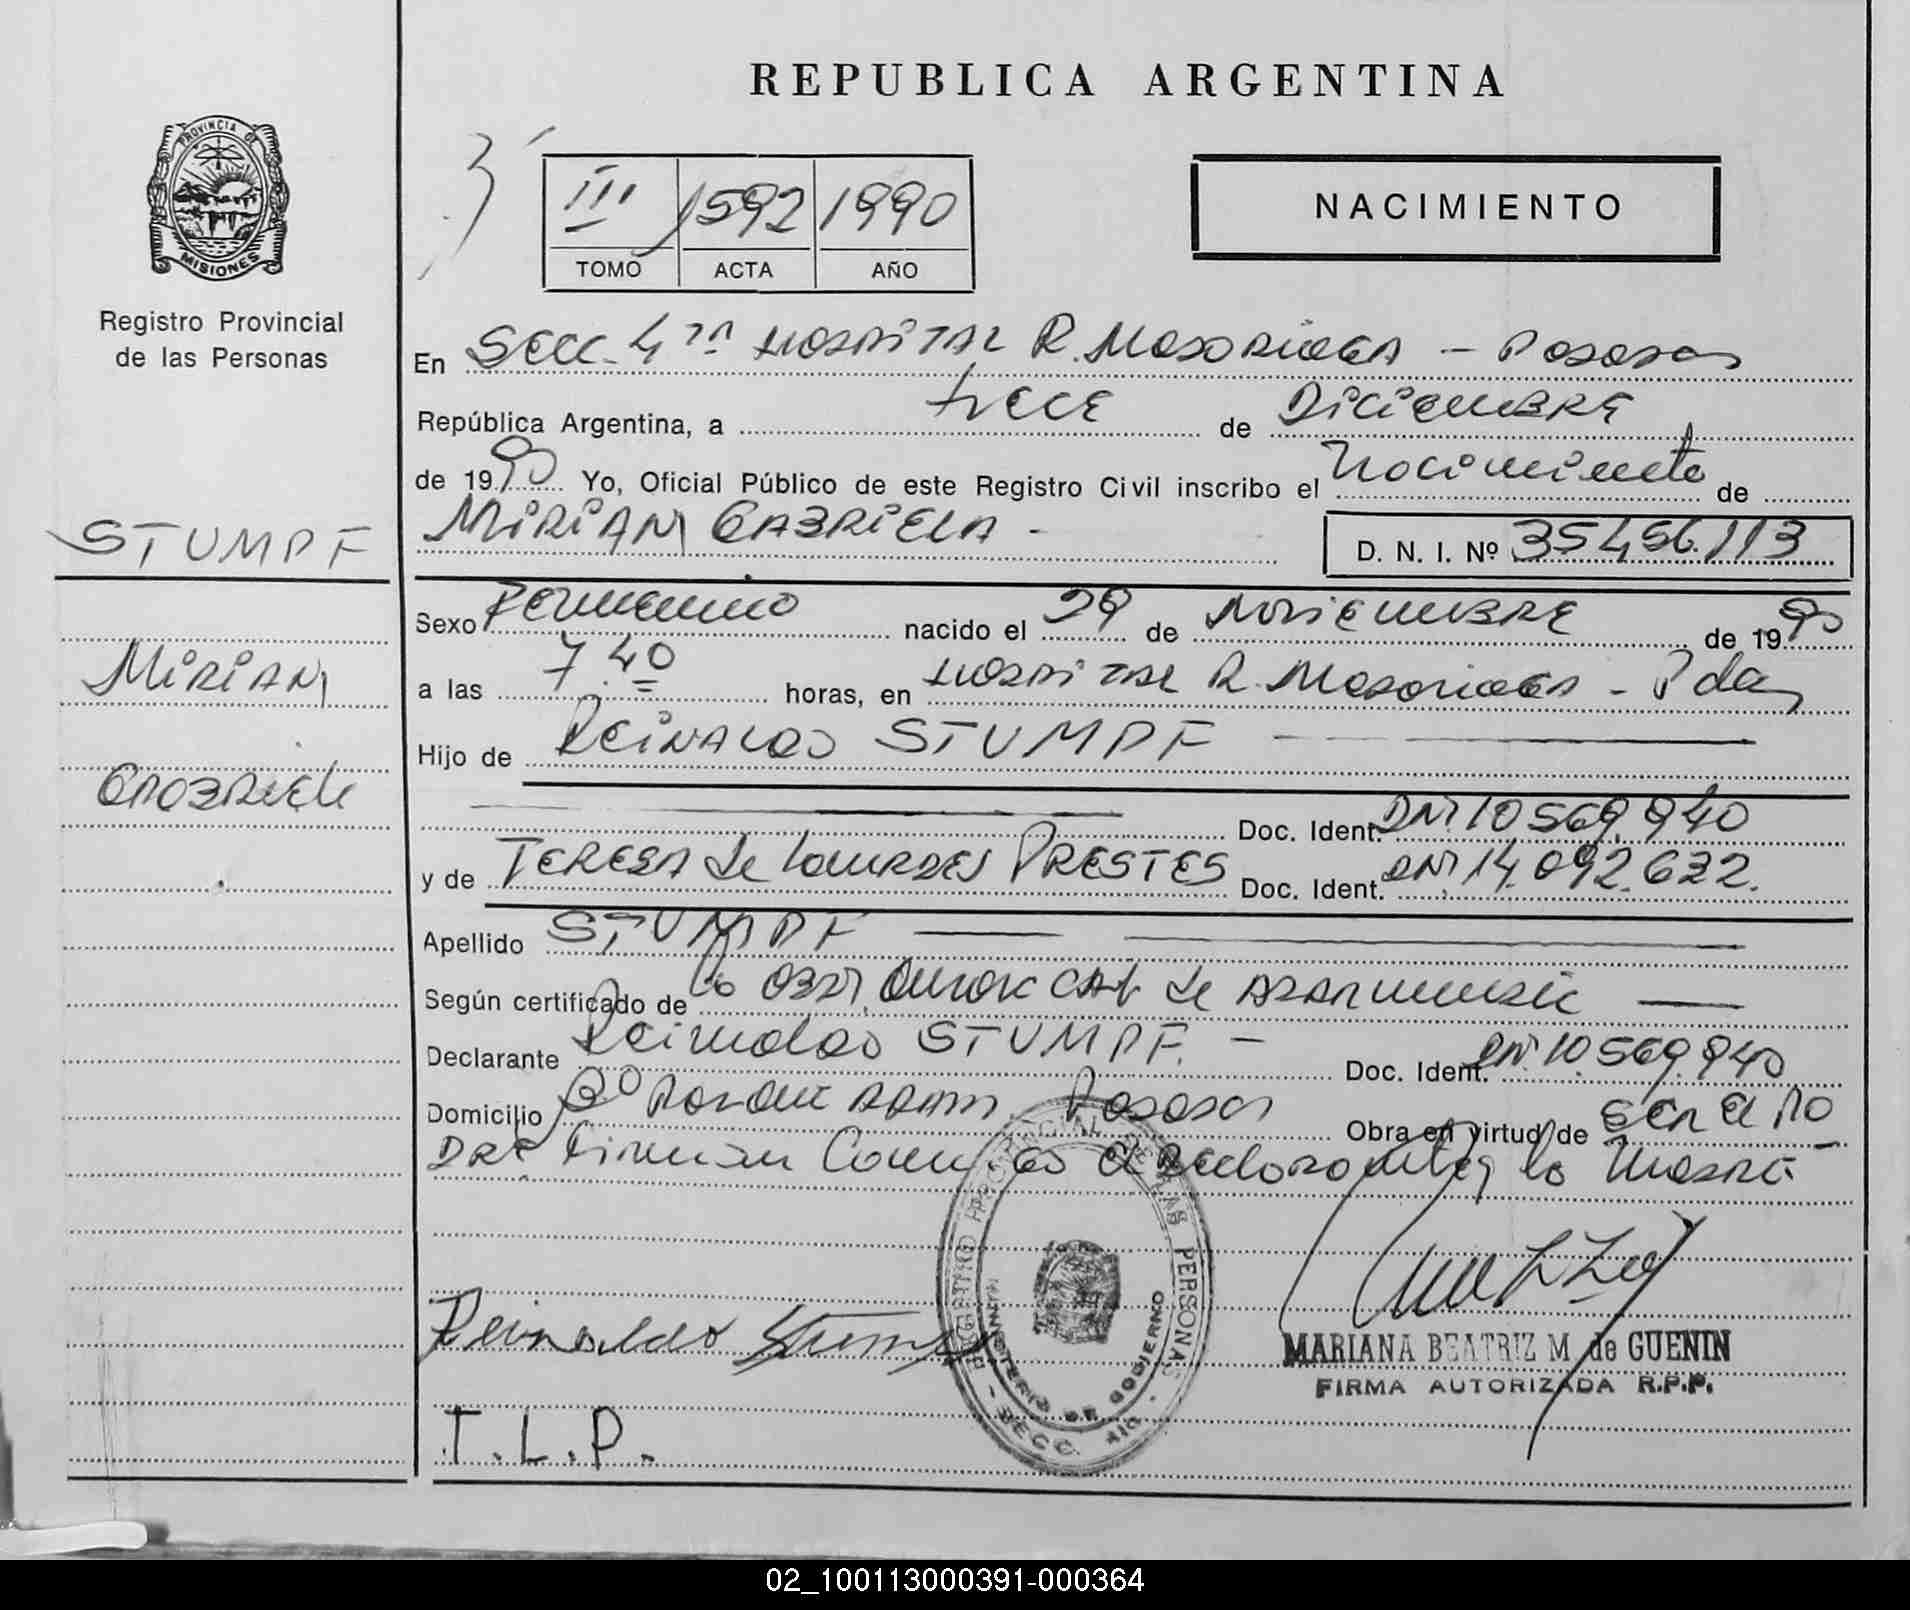 REPUBLICA ARGENTINA
PROVINCIA DE
MISIONES
Registro Provincial
de las Personas
3
III 1592 1990
TOMO ACTA AÑO
NACIMIENTO
En Secc. 4ta HOSPITAL R. Madariaga - Posadas
República Argentina, a trece de DICIEMBRE
de 1990 Yo, Oficial Público de este Registro Civil inscribo el Nacimiento de
MIRIAN GABRIELA -
D. N. I. Nº 35.456.113
STUMPF
MIRIAN
GABRIELA
Sexo Femenino nacido el 29 de NOVIEMBRE de 1990
a las 7.40 horas, en HOSPITAL R. Madariaga - Pdas
Hijo de Reinaldo STUMPF
Doc. Ident. DNI 10.569.940
y de TERESA de Lourdes PRESTES Doc. Ident. DNI 14.092.632.
Apellido STUMPF
Según certificado de la Obst.
Declarante Reinaldo STUMPF. - Doc. Ident. DNI. 10.569.940
Domicilio Bº Posadas Obra en virtud de ser el pa
dre Firman el declarante y la madre
Reinaldo Stumpf
T.L.P.
REGISTRO PROVINCIAL DE LAS PERSONAS
MINISTERIO DE GOBIERNO
SECC. 4ta
MARIANA BEATRIZ M. de GUENIN
FIRMA AUTORIZADA R.P.P.
02_100113000391-000364